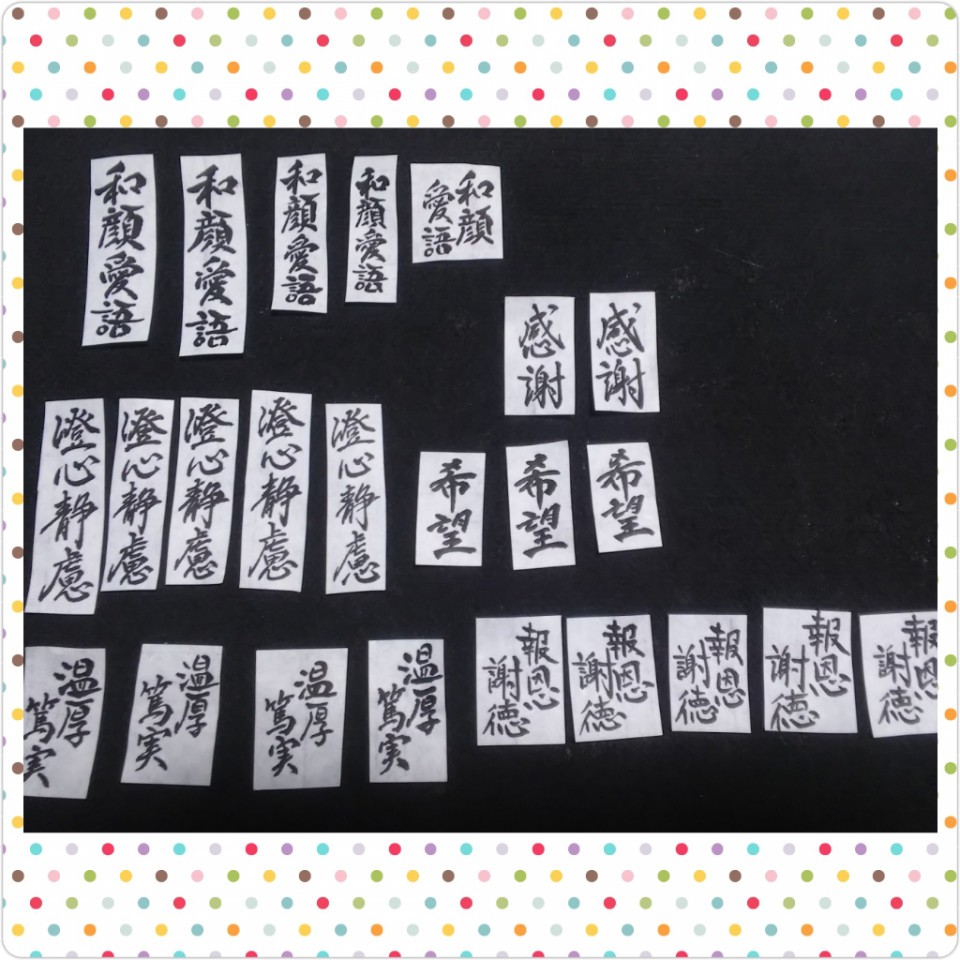 和顔愛語
和顔愛語
和顔愛語
和顔愛語
和顔
愛語
感謝
感謝
澄心静慮
澄心静慮
澄心静慮
澄心静慮
澄心静慮
希望
希望
希望
温厚
篤実
温厚
篤実
温厚
篤実
温厚
篤実
報恩
謝徳
報恩
謝徳
報恩
謝徳
報恩
謝徳
報恩
謝徳